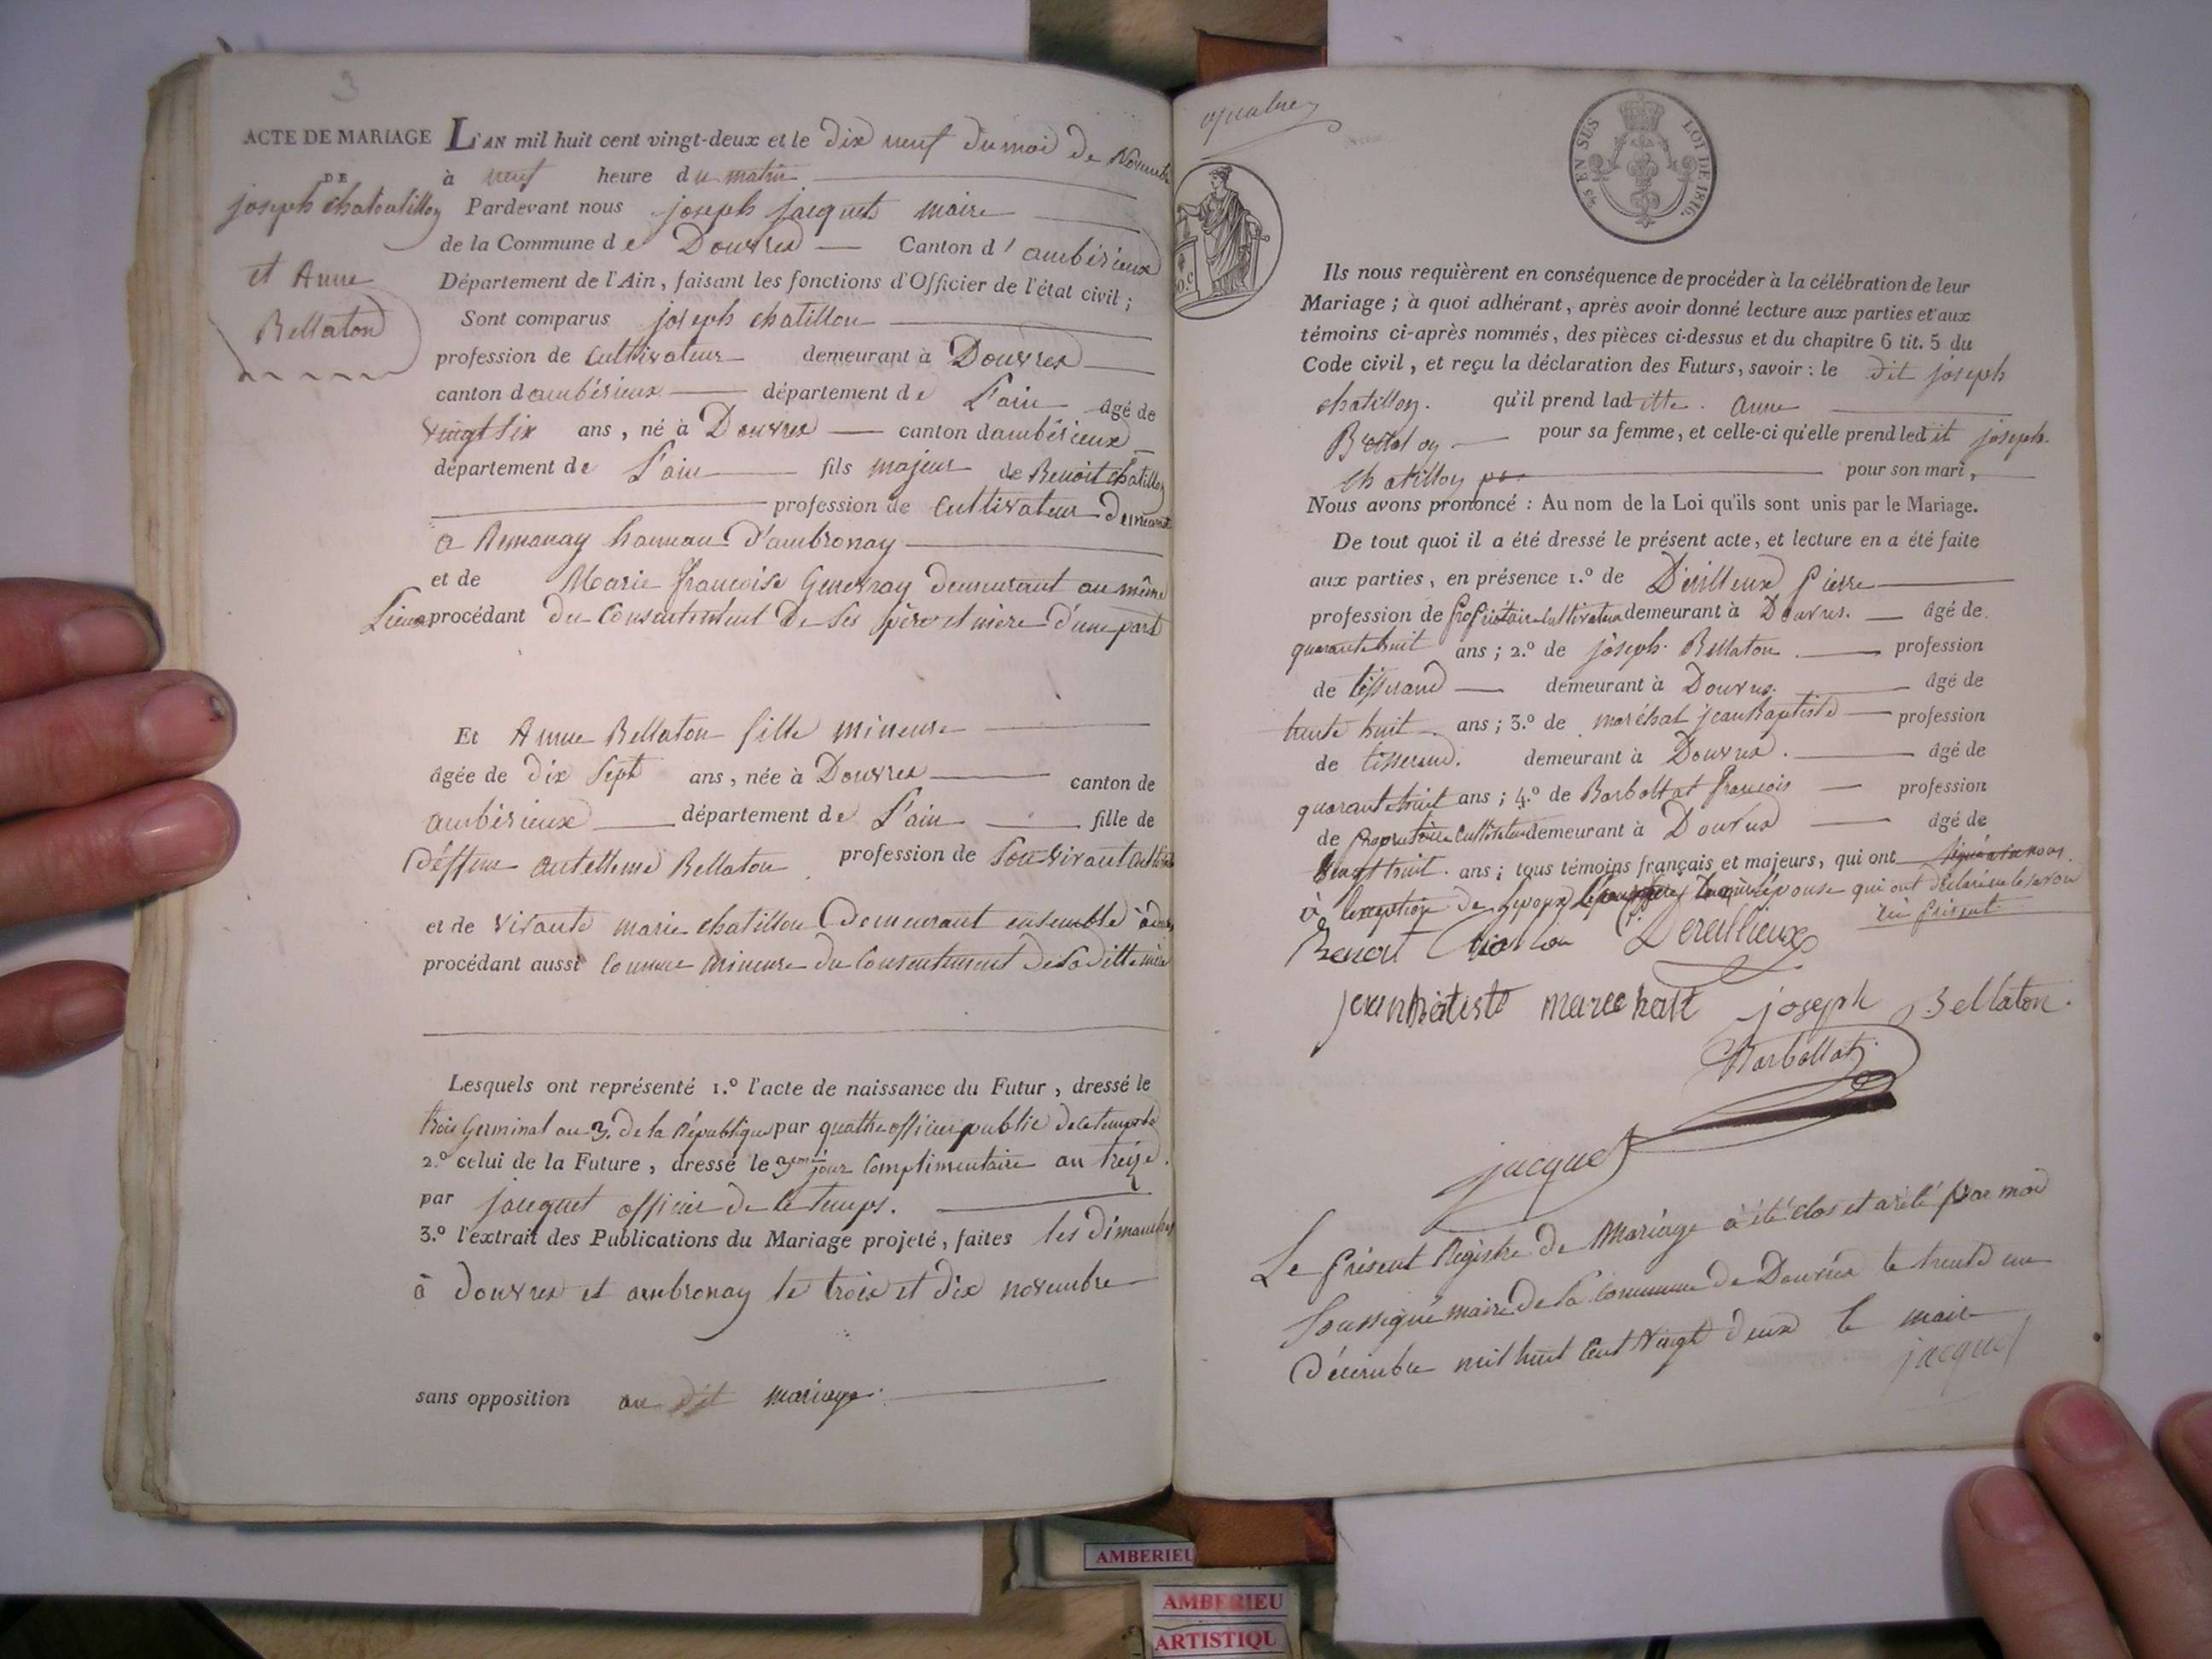 3
ACTE DE MARIAGE
DE
joseph chatouatillon
et Anne
Bellaton
L'AN mil huit cent vingt-deux et le dix neuf du mois de Novembre
à neuf heure du matin
Pardevant nous joseph jacquet maire
de la Commune de Douvres Canton d'ambérieux
Département de l'Ain, faisant les fonctions d'Officier de l'état civil;
Sont comparus joseph chatillon
profession de cultivateur demeurant à Douvres
canton d ambérieux département de L'ain âgé de
vingt six ans, né à Douvres canton dambérieux
département de L'ain fils majeur de Benoit chatillon
profession de cultivateur demeurant
a hameau d'ambronay
et de Marie françoise demeurant au même
Lieu procédant du Consentement De Ses père et mère D'une part
Et Anne Bellaton fille mineure
âgée de dix Sept ans, née à Douvres canton de
ambérieux département de L'ain fille de
Déffunt antelleme Bellaton profession de Son vivant
et de vivante marie chatillon Demeurant ensemble à
procédant aussi Comme mineure du Consentement De Sa ditte mère
Lesquels ont représenté 1.º l'acte de naissance du Futur, dressé le
trois Germinal an 3. de la République par quatre officier public de ce temps là
2.º celui de la Future, dressé le 3eme jour Complimentaire an treize
par jacquet officier De ce temps.
3.º l'extrait des Publications du Mariage projeté, faites les dimanches
à douvres et ambronay le trois et dix novembre
sans opposition au dit mariage.
quatre
45 EN SUS
LOI DE 1816.
Ils nous requièrent en conséquence de procéder à la célébration de leur
Mariage; à quoi adhérant, après avoir donné lecture aux parties et aux
témoins ci-après nommés, des pièces ci-dessus et du chapitre 6 tit. 5 du
Code civil, et reçu la déclaration des Futurs, savoir: le dit joseph
chatillon. qu'il prend laditte. anne
Bellaton pour sa femme, et celle-ci qu'elle prend ledit joseph.
Chatillon pour son mari,
Nous avons prononcé: Au nom de la Loi qu'ils sont unis par le Mariage.
De tout quoi il a été dressé le présent acte, et lecture en a été faite
aux parties, en présence 1.º de D'erilleux pierre
profession de propriétaire Cultivateur demeurant à Douvres. âgé de
quarante huit ans; 2.º de joseph Bellaton profession
de tisserand demeurant à Douvres. âgé de
trente huit ans; 3.º de maréchal jean Baptiste profession
de tisserand. demeurant à Douvres. âgé de
quarante huit ans; 4.º de Barbollat françois profession
de propriétaire Cultivateur demeurant à Douvres âgé de
vingt huit. ans; tous témoins français et majeurs, qui ont signé avec nous
à l'exception de l'epoux l'épouse qui ont déclaré ne le savoir
Benoit Chatillon Dereillieux
jean batiste marechalt joseph Bellaton.
Barbollat
jacquet
Le présent Registre De Mariage à été clos et arété par moi
Soussigné maire De la Commune De Douvres le trente un
Décembre mil huit Cent Vingt deux le maire
jacquet
AMBERIEU
AMBERIEU
ARTISTIQU